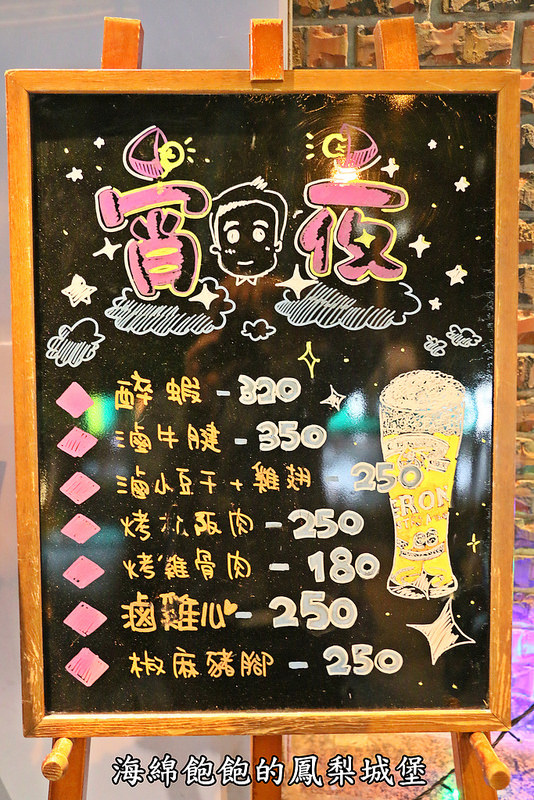 宵夜
醉蝦 - 320
滷牛腱 - 350
滷小豆干 + 雞翅 - 250
烤松阪肉 - 250
烤雞骨肉 - 180
滷雞心 - 250
椒麻豬腳 - 250
ERON
海綿飽飽的鳳梨城堡